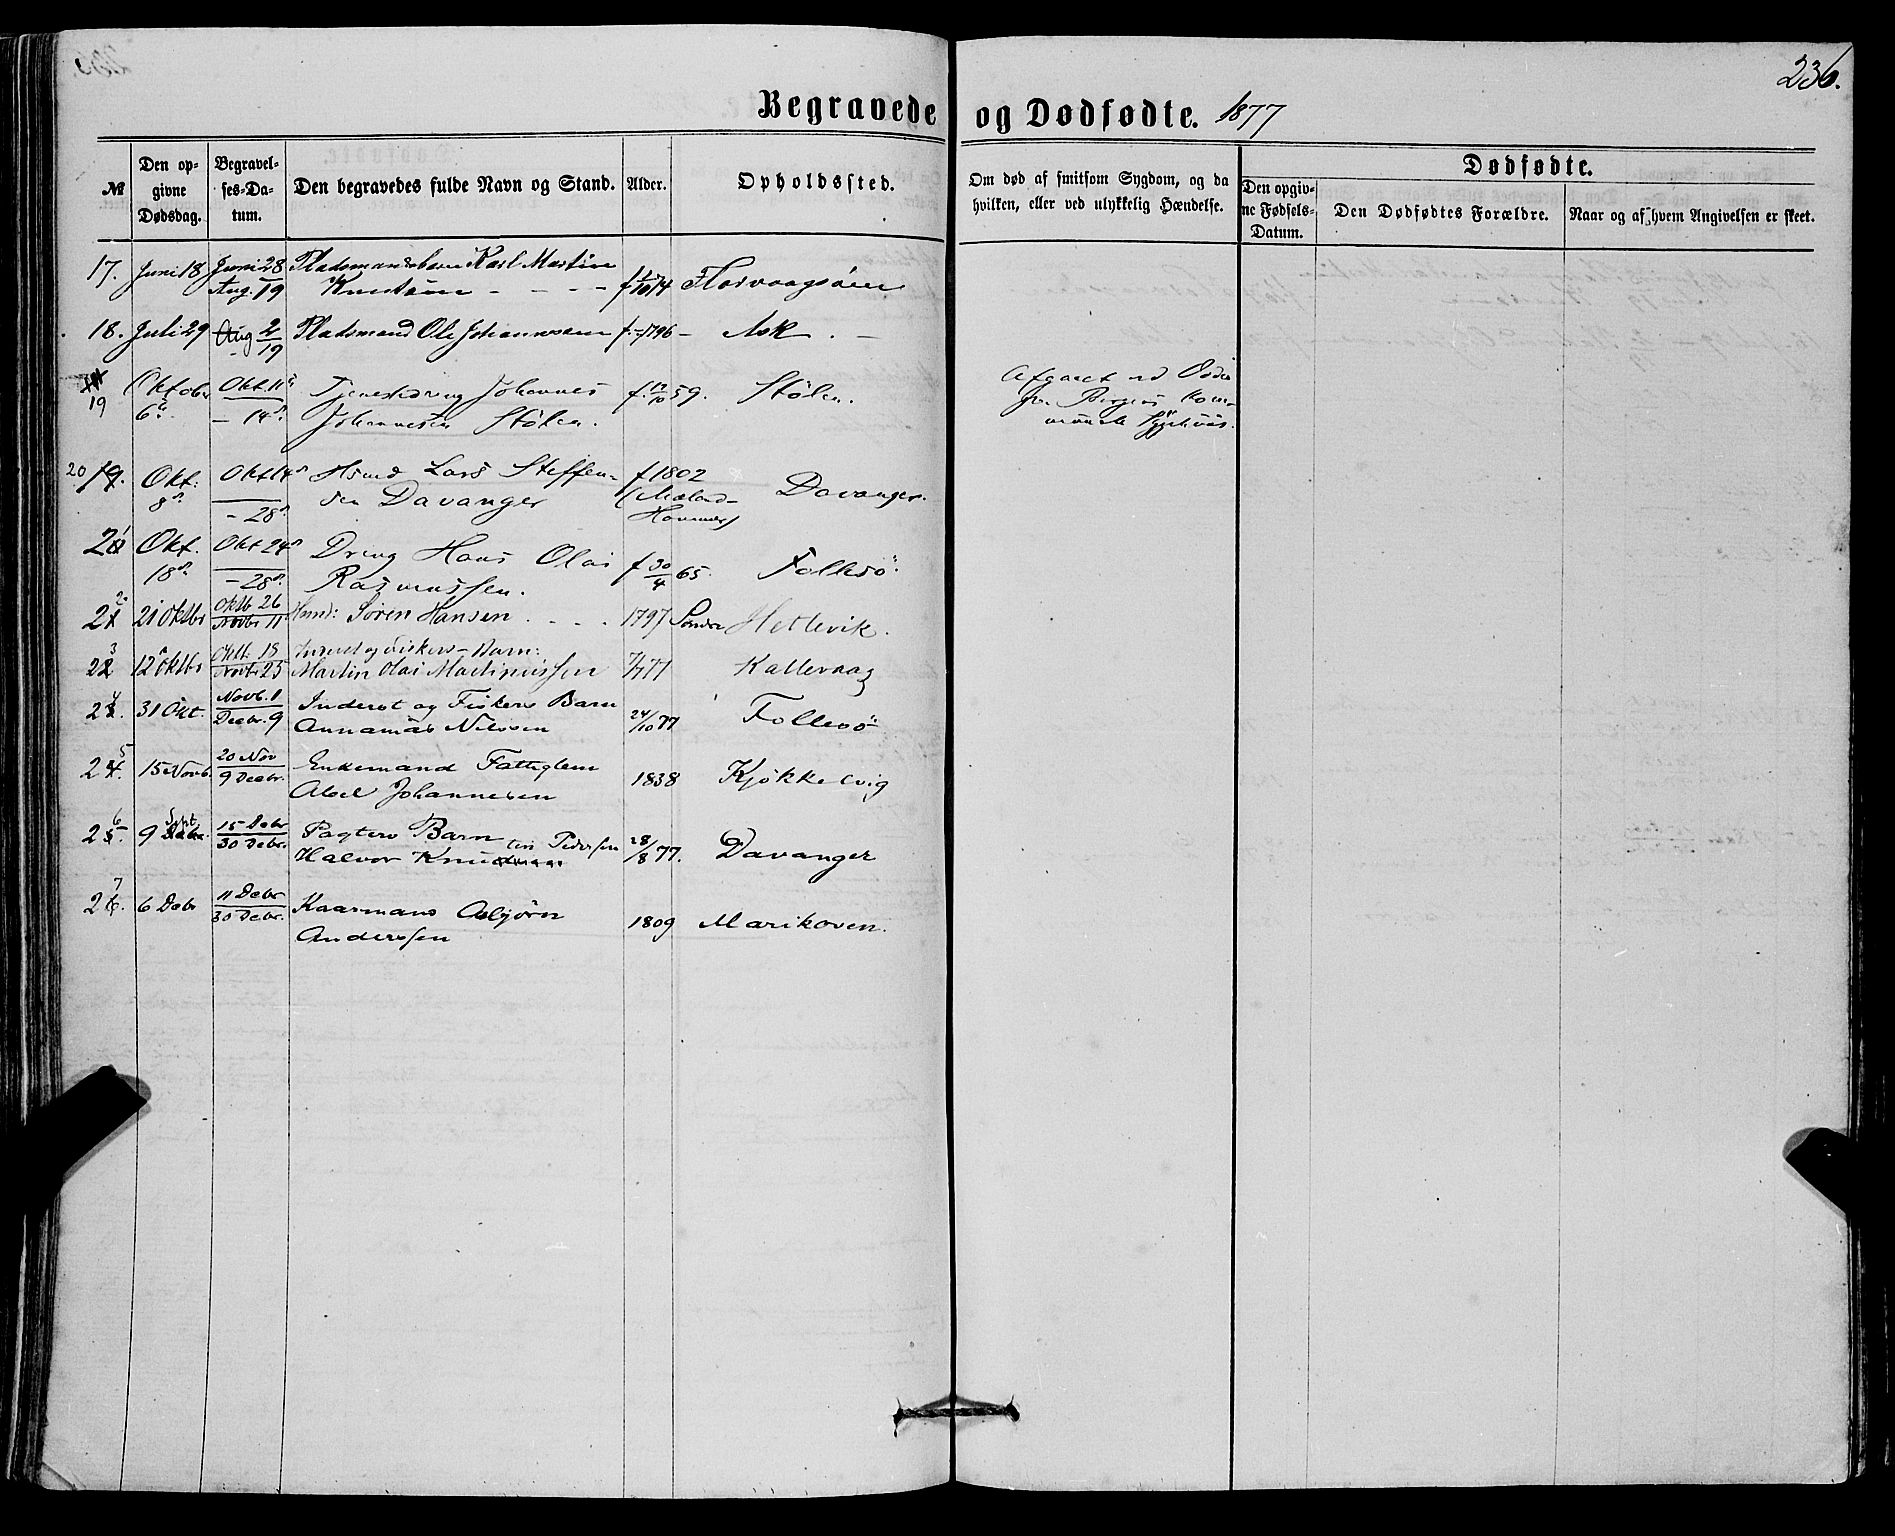 236.
Begravede og Dødfødte. 1877
№
Den op-
givne
Dødsdag.
Begravel-
ses-Da-
tum.
Den begravedes fulde Navn og Stand.
Alder.
Opholdssted.
Om død af smitsom Sygdom, og da
hvilken, eller ved ulykkelig Hændelse.
Dødfødte.
Den opgiv-
ne Fødsels-
Datum.
Den Dødfødtes Forældre.
Naar og af hvem Angivelsen er skeet.
17. Juni 18 Juni 28 Pladsmandsbarn Karl Martin
Aug. 19 Knutsen - - - - Florvaagsøen
18. Juli 29 Aug 2 Pladsmand Ole Johannesen f. 1796 - Ask. -
19
19 Oktober Okt. 11 Tjenestedreng Johannes f. 12/10 59. Stølen.
6 - 14 Johannesen Stølen.
Afgaaet ved Døden
Bergens Kom-
munale Sygehuus.
20 19. Okt. Okt 14 Hsmd Lars Steffen- f 1802 Davanger.
8 - 28 sen Davanger
21 Okt. Okt 24 Dreng Hans Olai f 30/4 65. Follesö.
18 - 28 Rasmussen.
22 21 Oktbr Oktb 26 Hmd: Søren Hansen . . . . 1797 Søndre Hetlevik.
Novbr 11
23 12 Oktbr Oktb. 18 Inderst og Fiskers-Barn:
Novbr 25 Martin Olai Martinussen 7/77 Kallevaag
24. 31 Okt. Novb. 1 Inderst og Fiskers Barn
Decbr. 9 Annamas Nilssen 24/10 77 Follesö
25. 15 Novb. 20 Nov Enkemand Fattiglem
9 Decbr. Abel Johannesen 1838 Kjøkkelvig
26. 9 Sept. 15 Debr Pagters Barn
30 Debr. Halvor Knud Pedersen 28/8 77. Davanger
27. 6 Debr 11 Debr Kaarmand Asbjørn
30 Debr. Anderssen 1809 Marikoven.